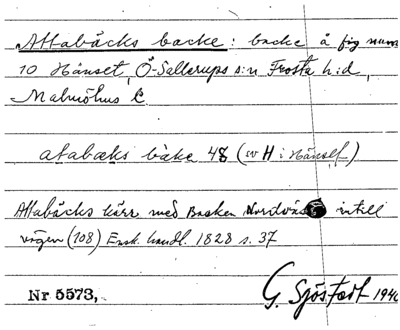 Attabäcks backe: backe å fig num
10 Hänset, Ö-Sallerups s:n Frosta h:d,
Malmöhus L
atabæks bàke 48 (sv H i Hänset)
Attabäcks kärr med Backen Nordväst intill
vägen (108) Ensk. handl. 1828 s. 37
Nr 5573, G. Sjöstedt 1940